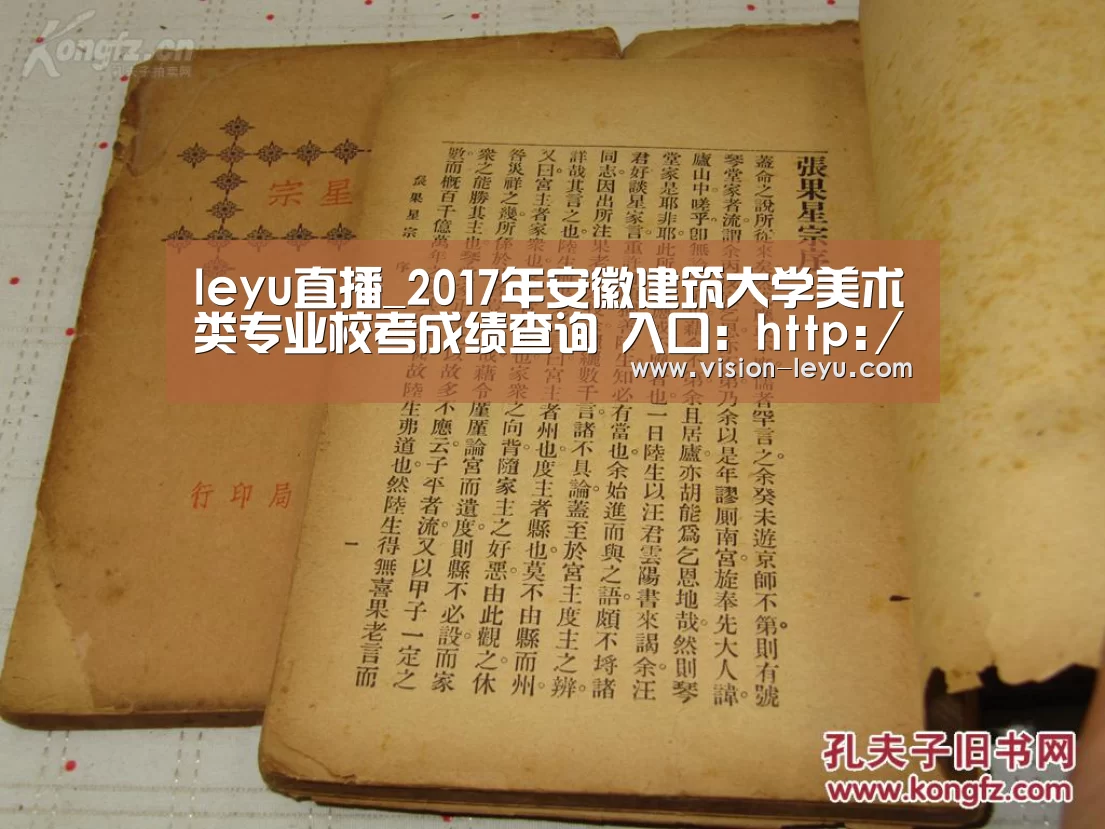 Kongfz.cn
孔夫子拍卖网
星宗
局印行
張果星宗序
蓋命之說所從來 儒者罕言之余癸未遊京師不第則有號
琴堂家者流謂余 第乃余以是年謬厠南宮旋奉先大人諱
廬山中嗟乎卽無論 不第余且居廬亦胡能爲乞恩地哉然則琴
堂家是耶非耶此所 者也一日陸生以汪君雲陽書來謁余汪
君好談星家言重許 生知必有當也余始進而與之語頗不埓諸
同志因出所注果老 數千言諸不具論蓋至於宮主度主之辨
詳哉其言之也陸生 曰宮主者州也度主者縣也莫不由縣而州
又曰宮主者家衆也 也家衆之向背隨家主之好惡由此觀之休
咎災祥之幾所係於 藉令厪厪論宮而遺度則縣不必設而家
衆之能勝其主也琴 故多不應云子平者流又以甲子一定之
數而概百千億萬年 故陸生弗道也然陸生得無喜果老言而
張果星宗 序
一
leyu直播_2017年安徽建筑大学美术
类专业校考成绩查询 入口：http:/
www.vision-leyu.com
孔夫子旧书网
www.kongfz.com